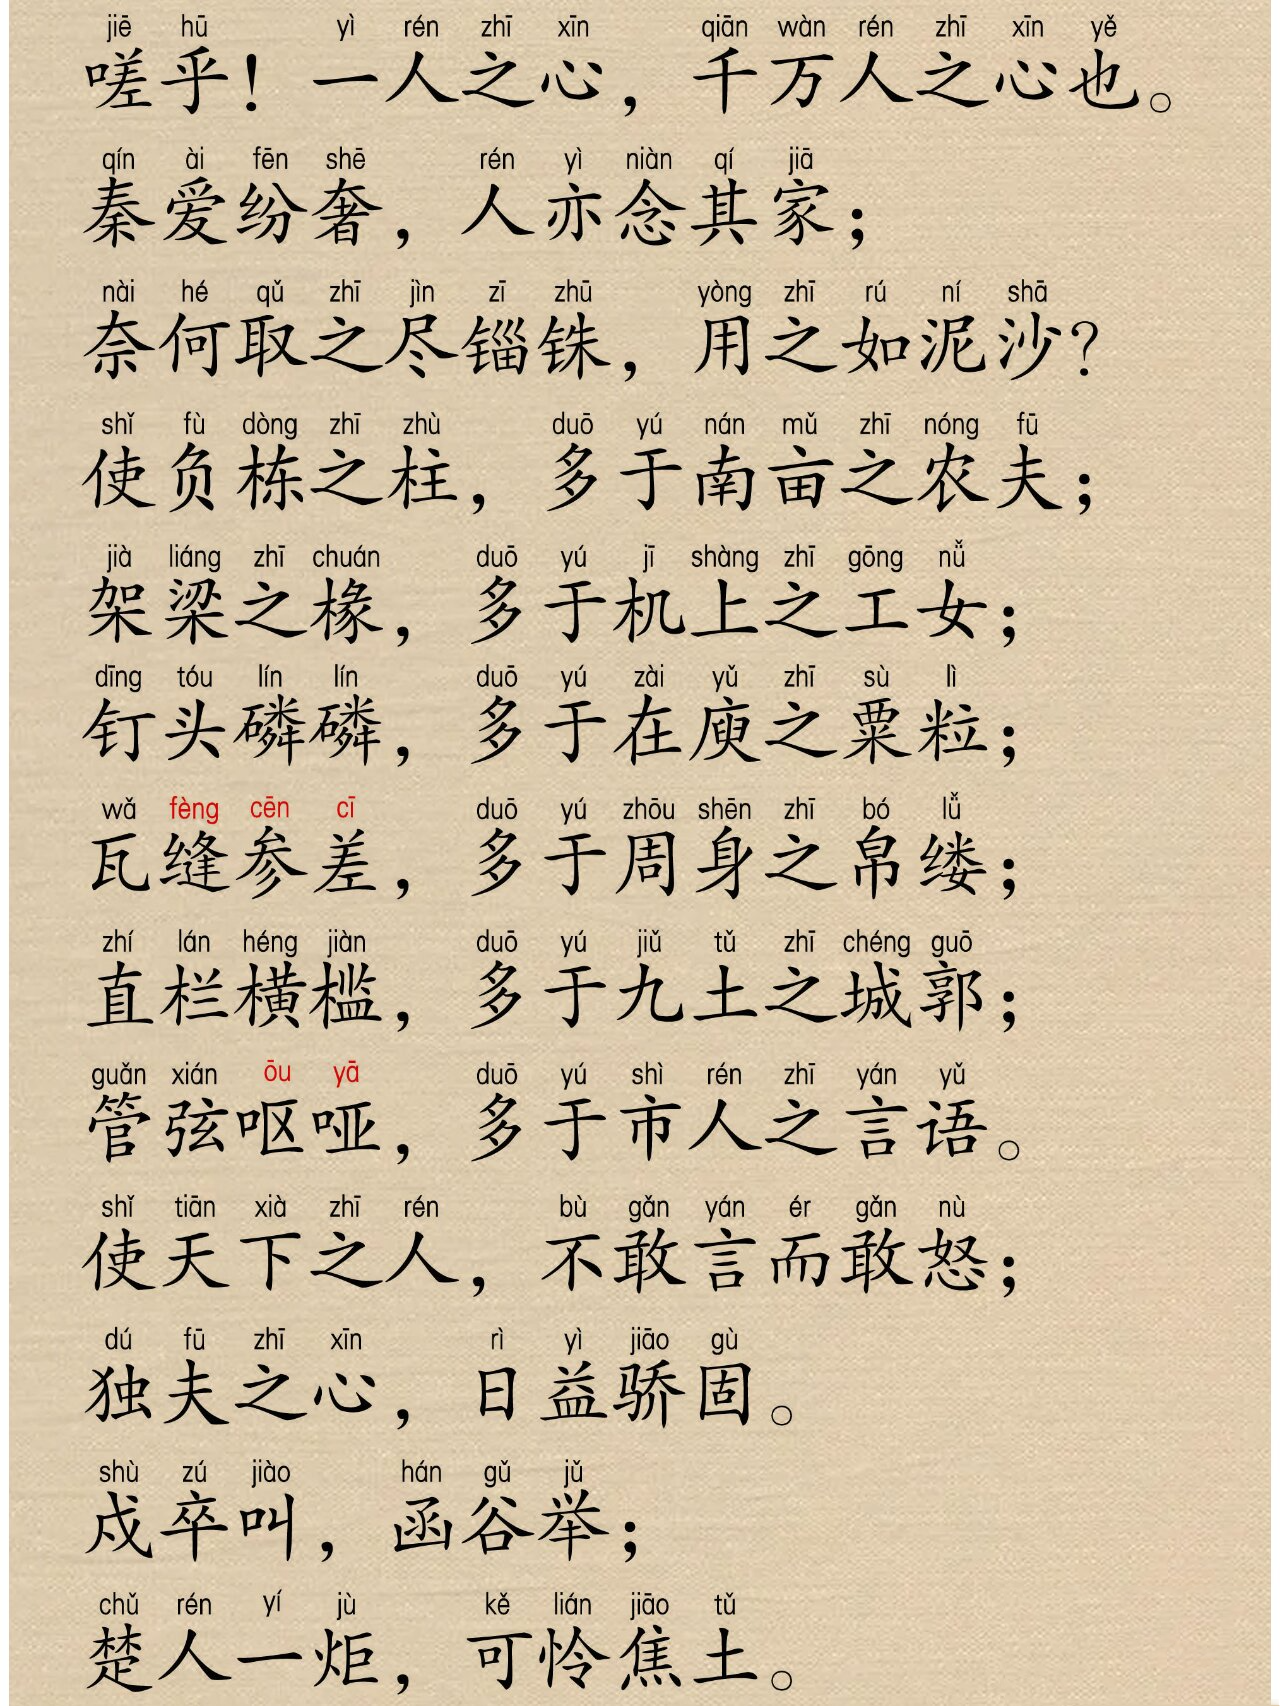 jiē hū yì rén zhī xīn qiān wàn rén zhī xīn yě
嗟乎！一人之心，千万人之心也。
qín ài fēn shē rén yì niàn qí jiā
秦爱纷奢，人亦念其家；
nài hé qǔ zhī jìn zī zhū yòng zhī rú ní shā
奈何取之尽锱铢，用之如泥沙？
shǐ fù dòng zhī zhù duō yú nán mǔ zhī nóng fū
使负栋之柱，多于南亩之农夫；
jià liáng zhī chuán duō yú jī shàng zhī gōng nǚ
架梁之椽，多于机上之工女；
dīng tóu lín lín duō yú zài yǔ zhī sù lì
钉头磷磷，多于在庾之粟粒；
wǎ fèng cēn cī duō yú zhōu shēn zhī bó lǚ
瓦缝参差，多于周身之帛缕；
zhí lán héng jiàn duō yú jiǔ tǔ zhī chéng guō
直栏横槛，多于九土之城郭；
guǎn xián ōu yā duō yú shì rén zhī yán yǔ
管弦呕哑，多于市人之言语。
shǐ tiān xià zhī rén bù gǎn yán ér gǎn nù
使天下之人，不敢言而敢怒；
dú fū zhī xīn rì yì jiāo gù
独夫之心，日益骄固。
shù zú jiào hán gǔ jǔ
戍卒叫，函谷举；
chǔ rén yí jù kě lián jiāo tǔ
楚人一炬，可怜焦土。